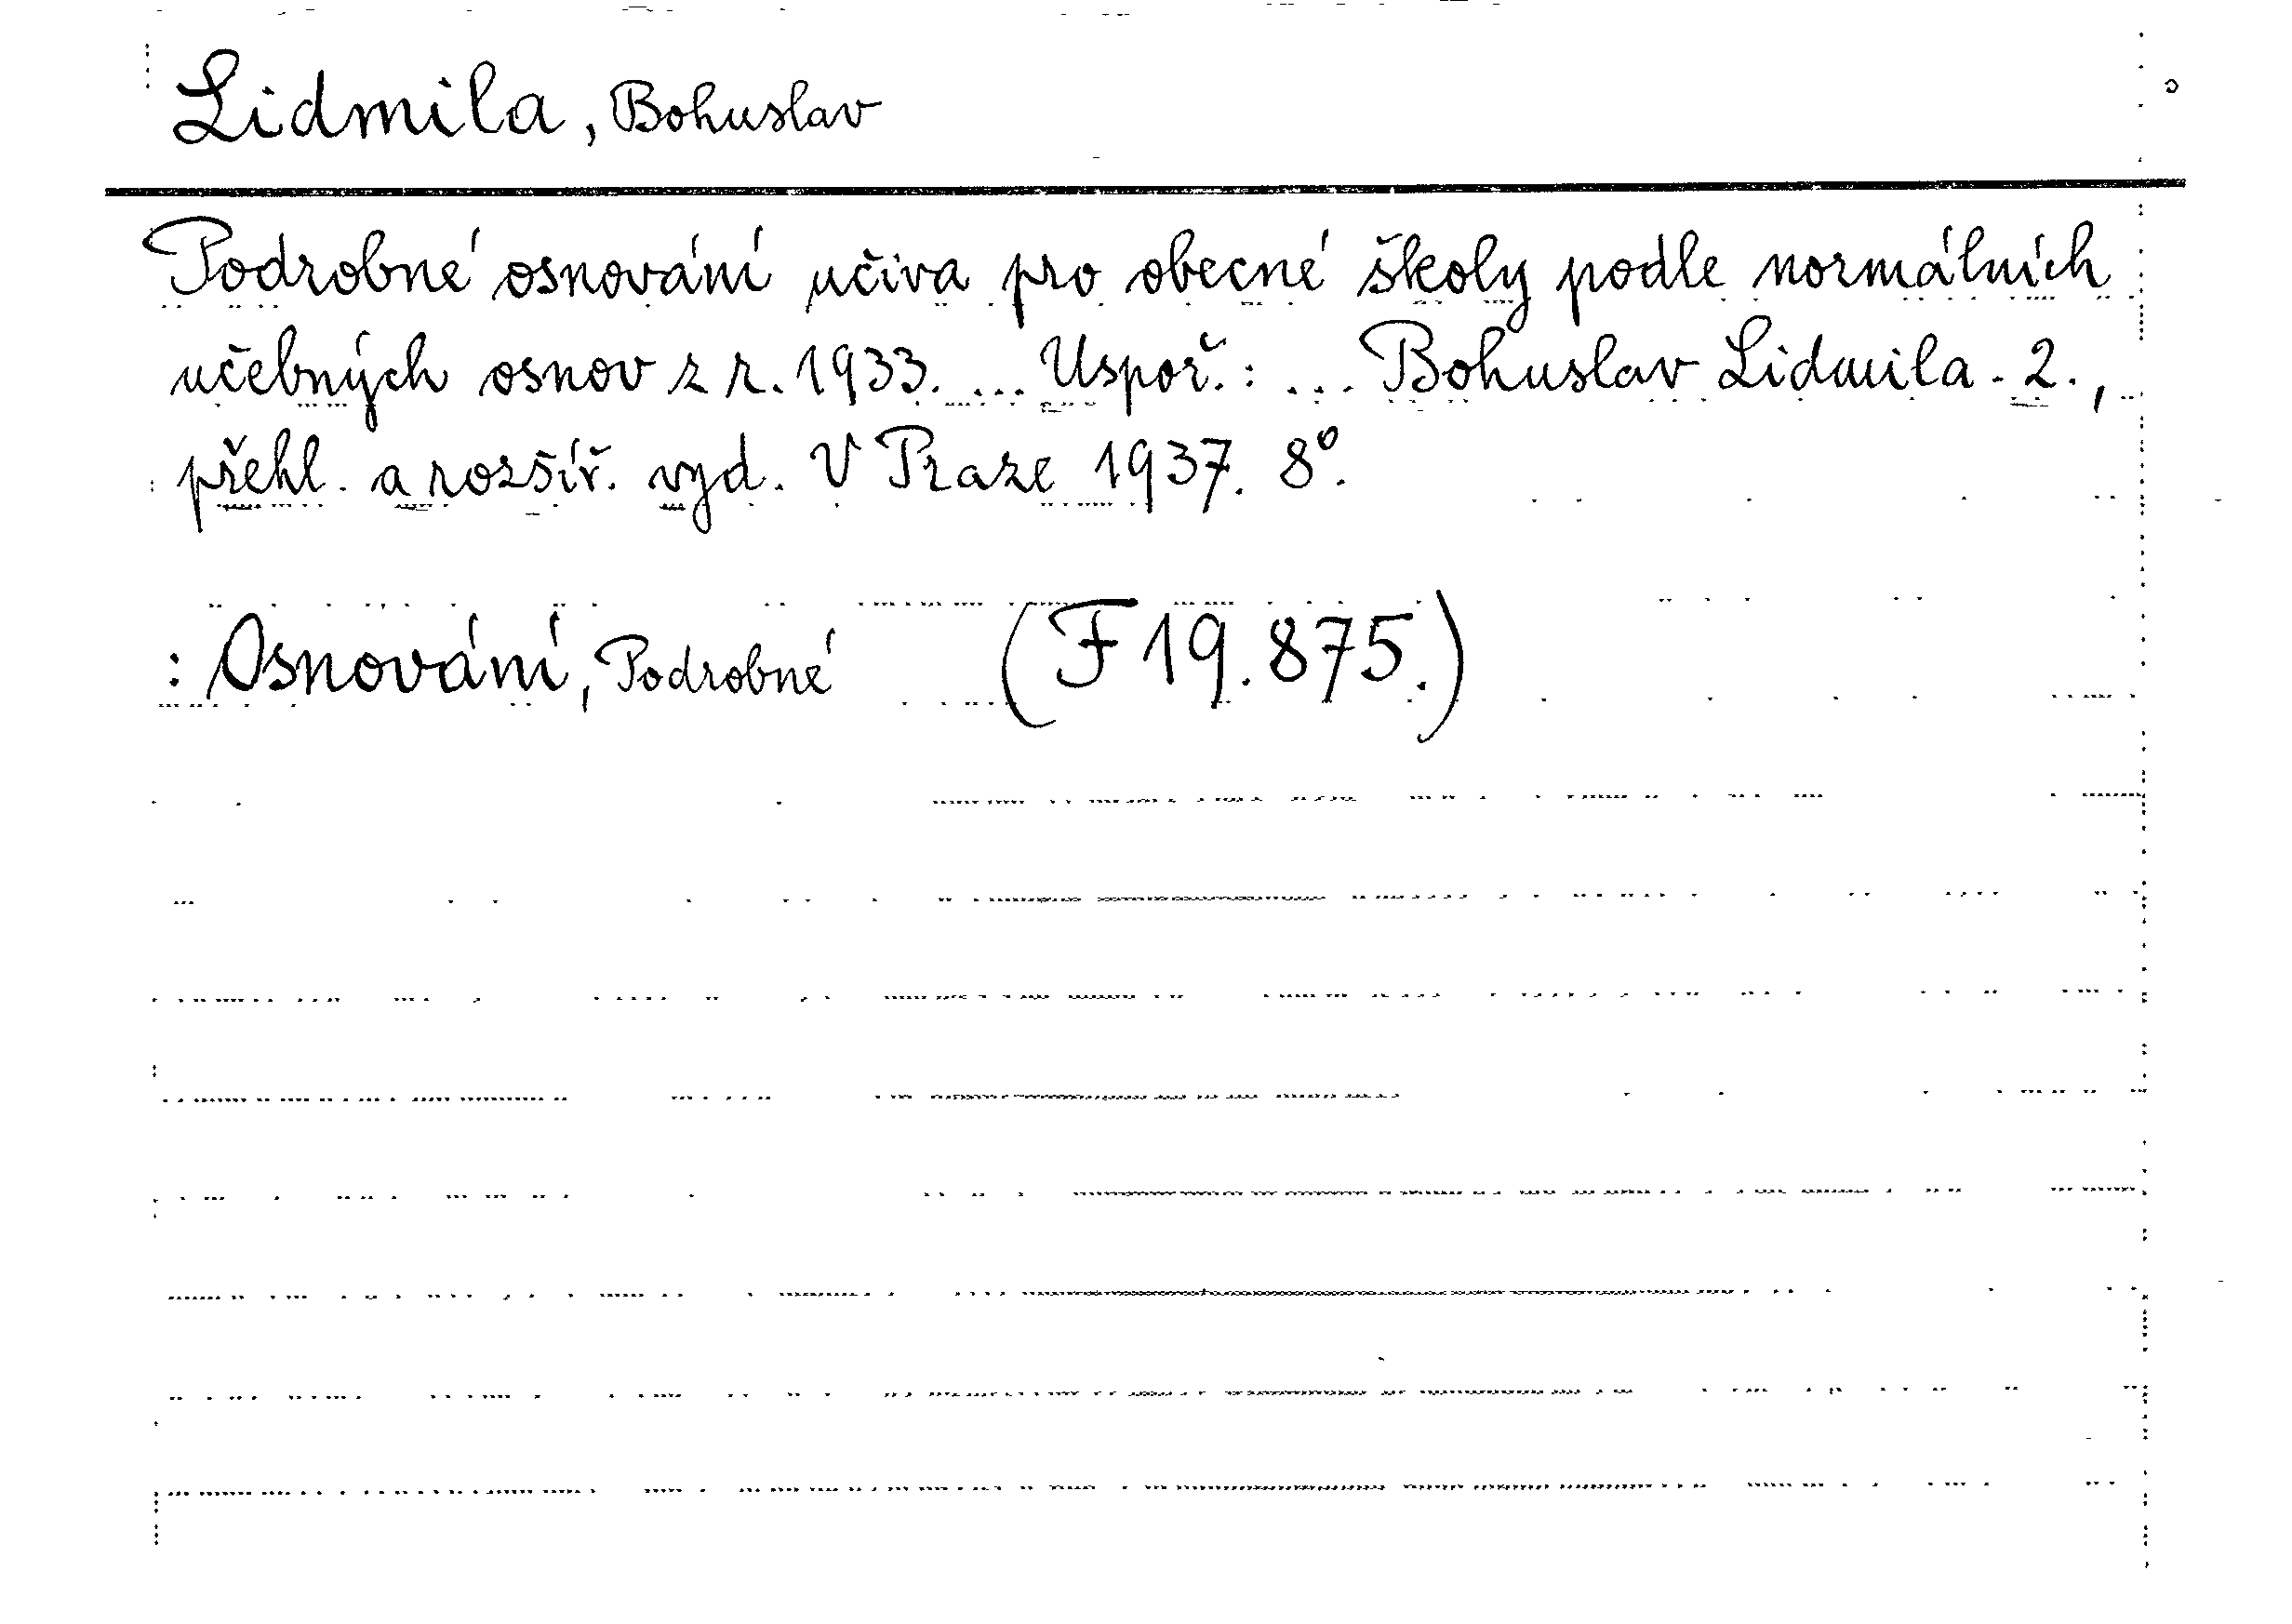 Lidmila, Bohuslav
Podrobné osnování učiva pro obecné školy podle normálních
učebných osnov z r. 1933. ... Uspoř.: ... Bohuslav Lidmila. 2.,
přehl. a rozšíř. vyd. V Praze 1937. 8°.
: Osnování, Podrobné (F 19.875.)